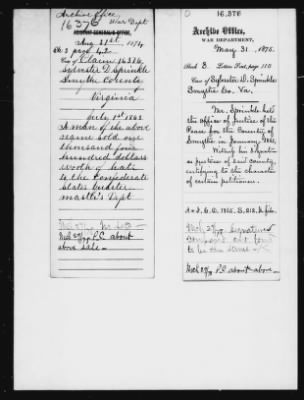 Archive Office
16376 War Dept
ADJUTANT GENERAL'S OFFICE,
Aug 21st 1874
Bk 3 page 42
Case of Claim 16376
Sylvester D Sprinkle
Smyth County
Virginia
July 1st 1863
A man of the above
name sold one
thousand four
hundred dollars
worth of hats
to the Confederate
States Quarter
master's Dept
P.C. about
above sale
16,376
Archive Office,
WAR DEPARTMENT,
May 31, 1875.
Book 3. Letter Press, page 110
Case of Sylvester D. Sprinkle
Smythe Co. Va.
Mr. Sprinkle held
the Office of Justice of the
Peace for the County of
Smythe in January, 1862,
his signature
as Justice of said County,
certifying to the character
of certain petitioners.
Signatures
to be the same
P.C. about above